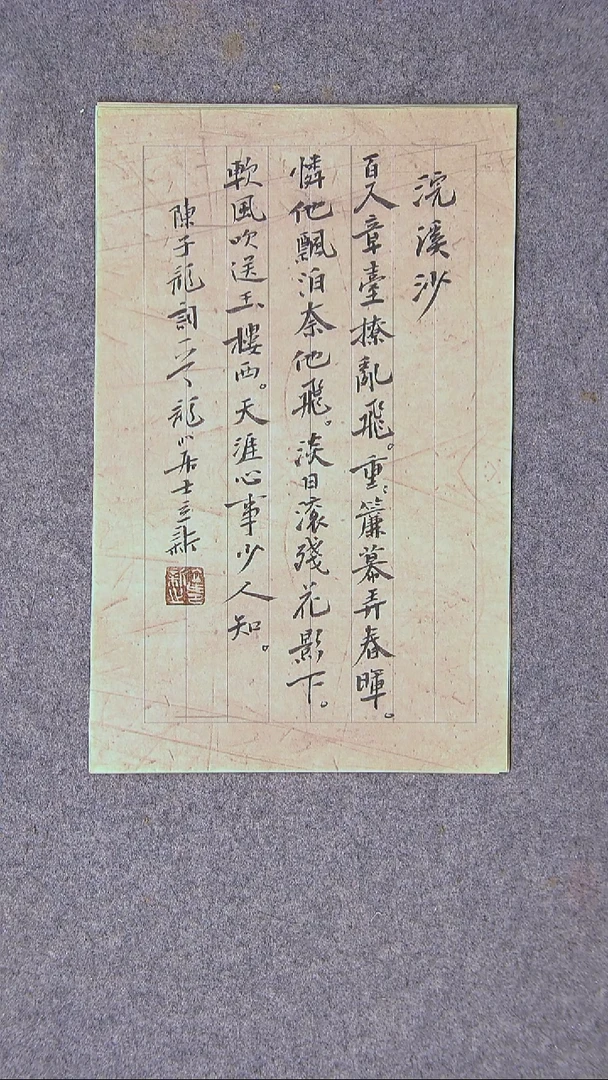 浣溪沙
百尺章臺撩亂飛。重〻簾幕弄春暉。
憐他飄泊奈他飛。淡日滾殘花影下。
軟風吹送玉樓西。天涯心事少人知。
陳子龍詞 龍山居士